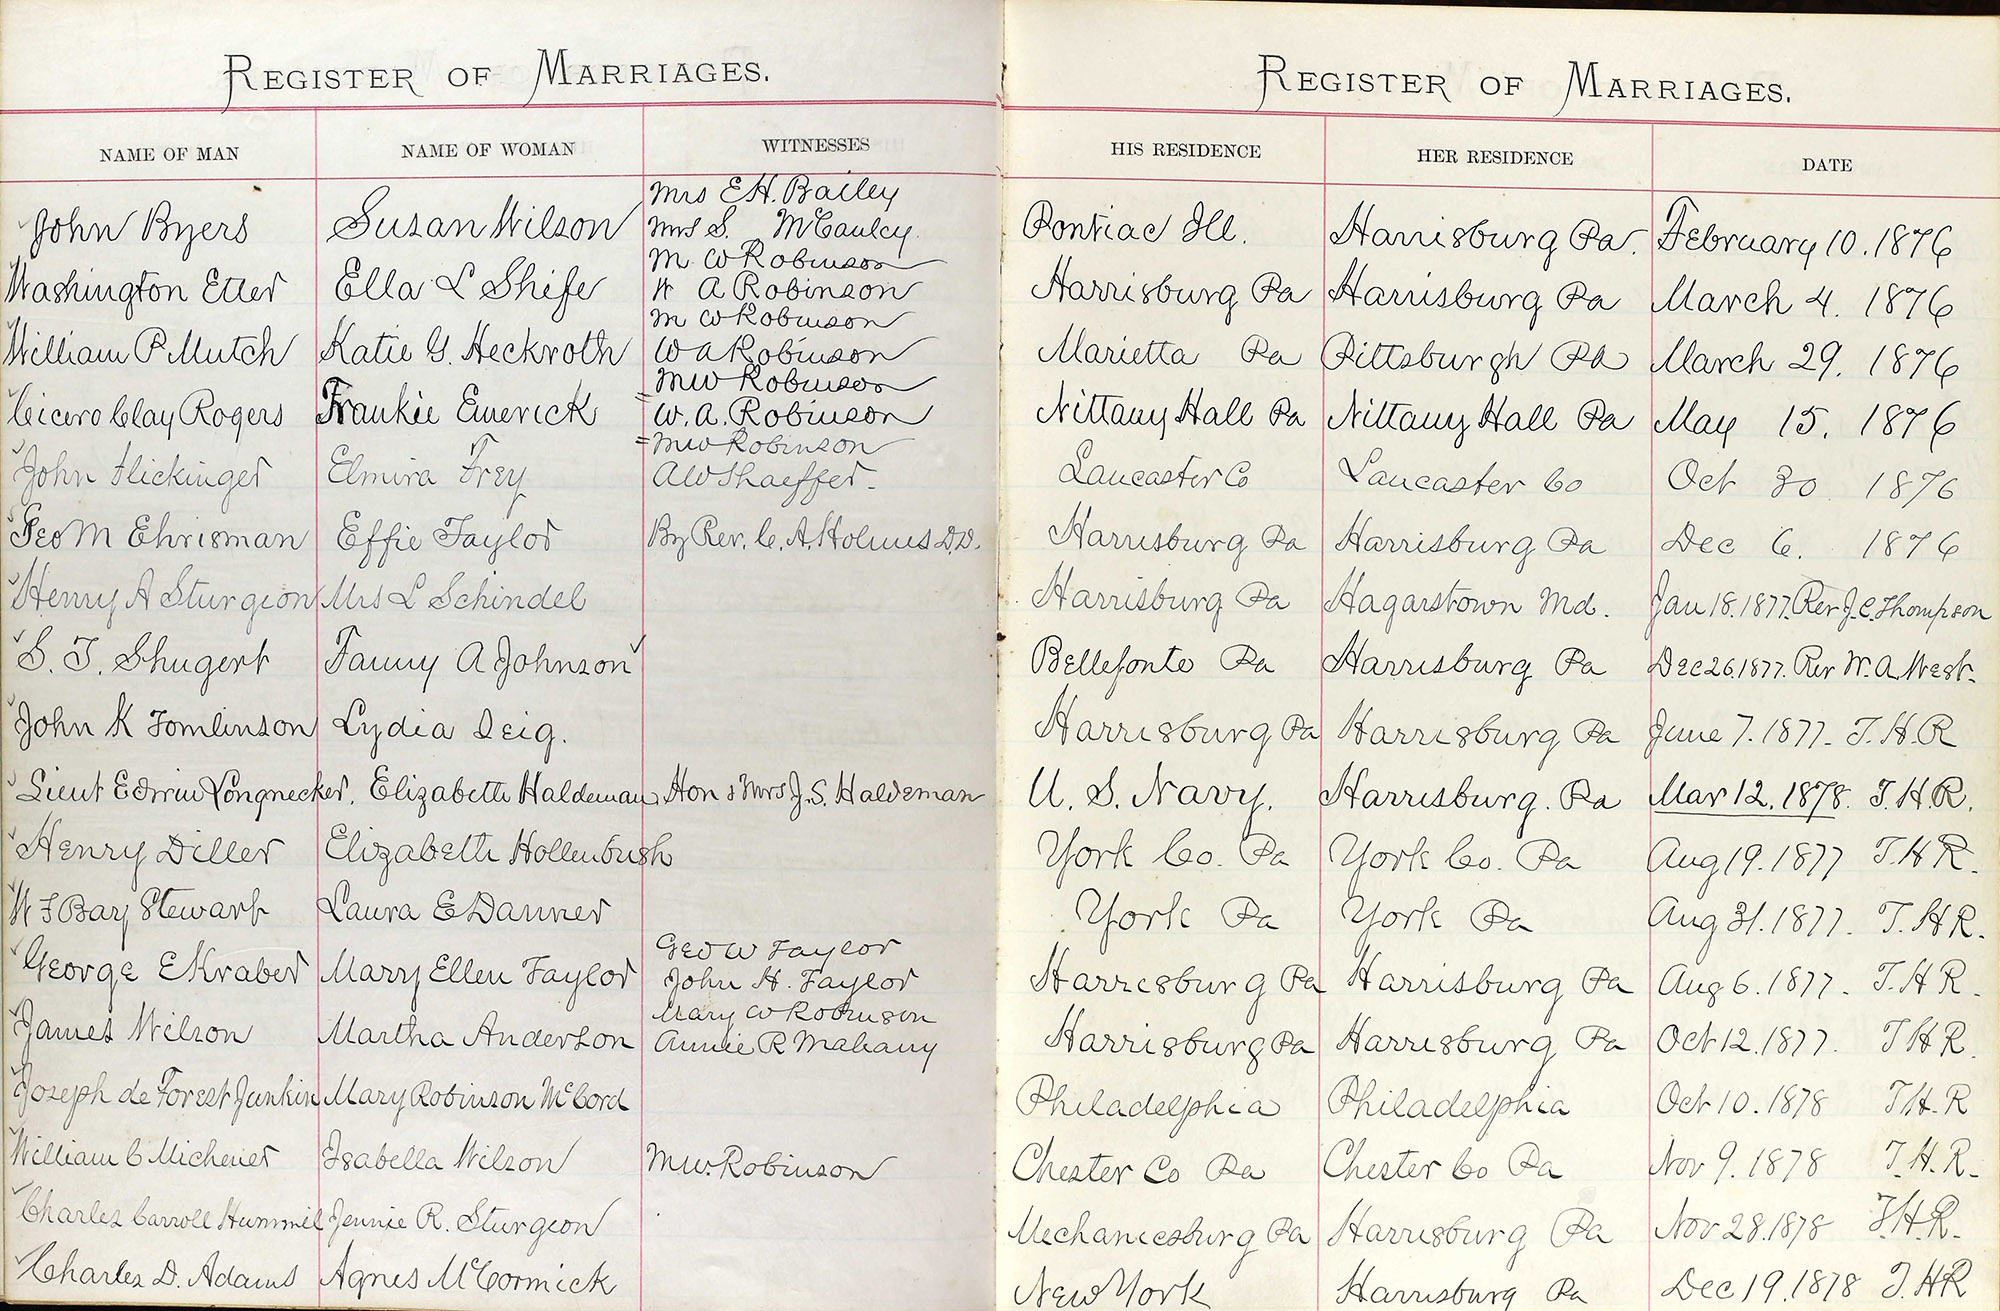 REGISTER OF MARRIAGES.
NAME OF MAN NAME OF WOMAN WITNESSES
Mrs E.H. Bailey
John Byers Susan Wilson Mrs S. McCauley.
M. W Robinson
Washington Etter Ella L Sheife W A Robinson
M W Robinson
William P Mutch Katie G. Heckroth W A Robinson
MW Robinson
Cicero Clay Rogers Frankie Emerick W. A. Robinson
= MW Robinson
John Flickinger Elmira Frey AW Shaeffer.
Geo M Ehrisman Effie Taylor By Rev. C. A. Holmes D.D.
Henry A Sturgeon Mrs L Schindel
S. T. Shugert Fanny A Johnson
John K Tomlinson Lydia Deig.
Lieut Edwin Longnecker. Elizabeth Haldeman Hon & Mrs J. S. Haldeman
Henry Diller Elizabeth Hollenbush
W F Bay Stewart Laura E Danner
Geo W Taylor
George E Kraber Mary Ellen Taylor John H. Taylor
Mary W Robinson
James Wilson Martha Anderson Annie R Mahany
Joseph de Forest Junkin Mary Robinson McCord
William C Michener Isabella Wilson M W. Robinson
Charles Carroll Hummel Jennie R. Sturgeon
Charles D. Adams Agnes McCormick
REGISTER OF MARRIAGES.
HIS RESIDENCE HER RESIDENCE DATE
Pontiac Ill. Harrisburg Pa. February 10. 1876
Harrisburg Pa Harrisburg Pa March 4. 1876
Marietta Pa Pittsburgh Pa March 29. 1876
Nittany Hall Pa Nittany Hall Pa May 15. 1876
Lancaster Co Lancaster Co Oct 30 1876
Harrisburg Pa Harrisburg Pa Dec 6. 1876
Harrisburg Pa Hagarstown Md. Jan 18. 1877. Rev J. C. Thompson
Bellefonte Pa Harrisburg Pa Dec 26. 1877. Rev W. A. West.
Harrisburg Pa Harrisburg Pa June 7. 1877. T. H. R
U. S. Navy. Harrisburg. Pa Mar 12. 1878. T. H. R.
York Co. Pa York Co. Pa Aug 19. 1877 T. H R.
York Pa York Pa Aug 31. 1877. T. H R.
Harrisburg Pa Harrisburg Pa Aug 6. 1877. T. H R.
Harrisburg Pa Harrisburg Pa Oct 12. 1877. T H R.
Philadelphia Philadelphia Oct 10. 1878 T H. R
Chester Co Pa Chester Co Pa Nov 9. 1878 T. H. R.
Mechanicsburg Pa Harrisburg Pa Nov 28. 1878 T. H. R.
New York Harrisburg Pa Dec 19. 1878 T. H R